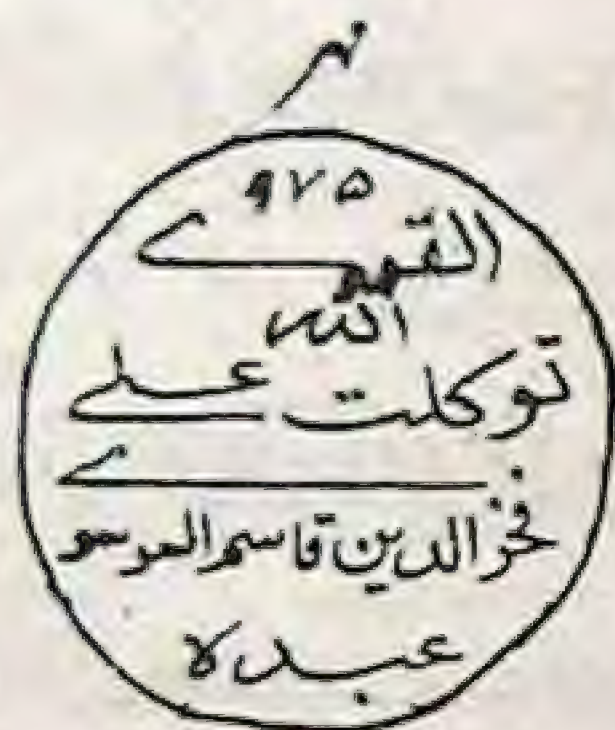 مهر
۹۷۵
القمی
الله
توکلت علی
فخرالدین قاسم الموسوی
عبده